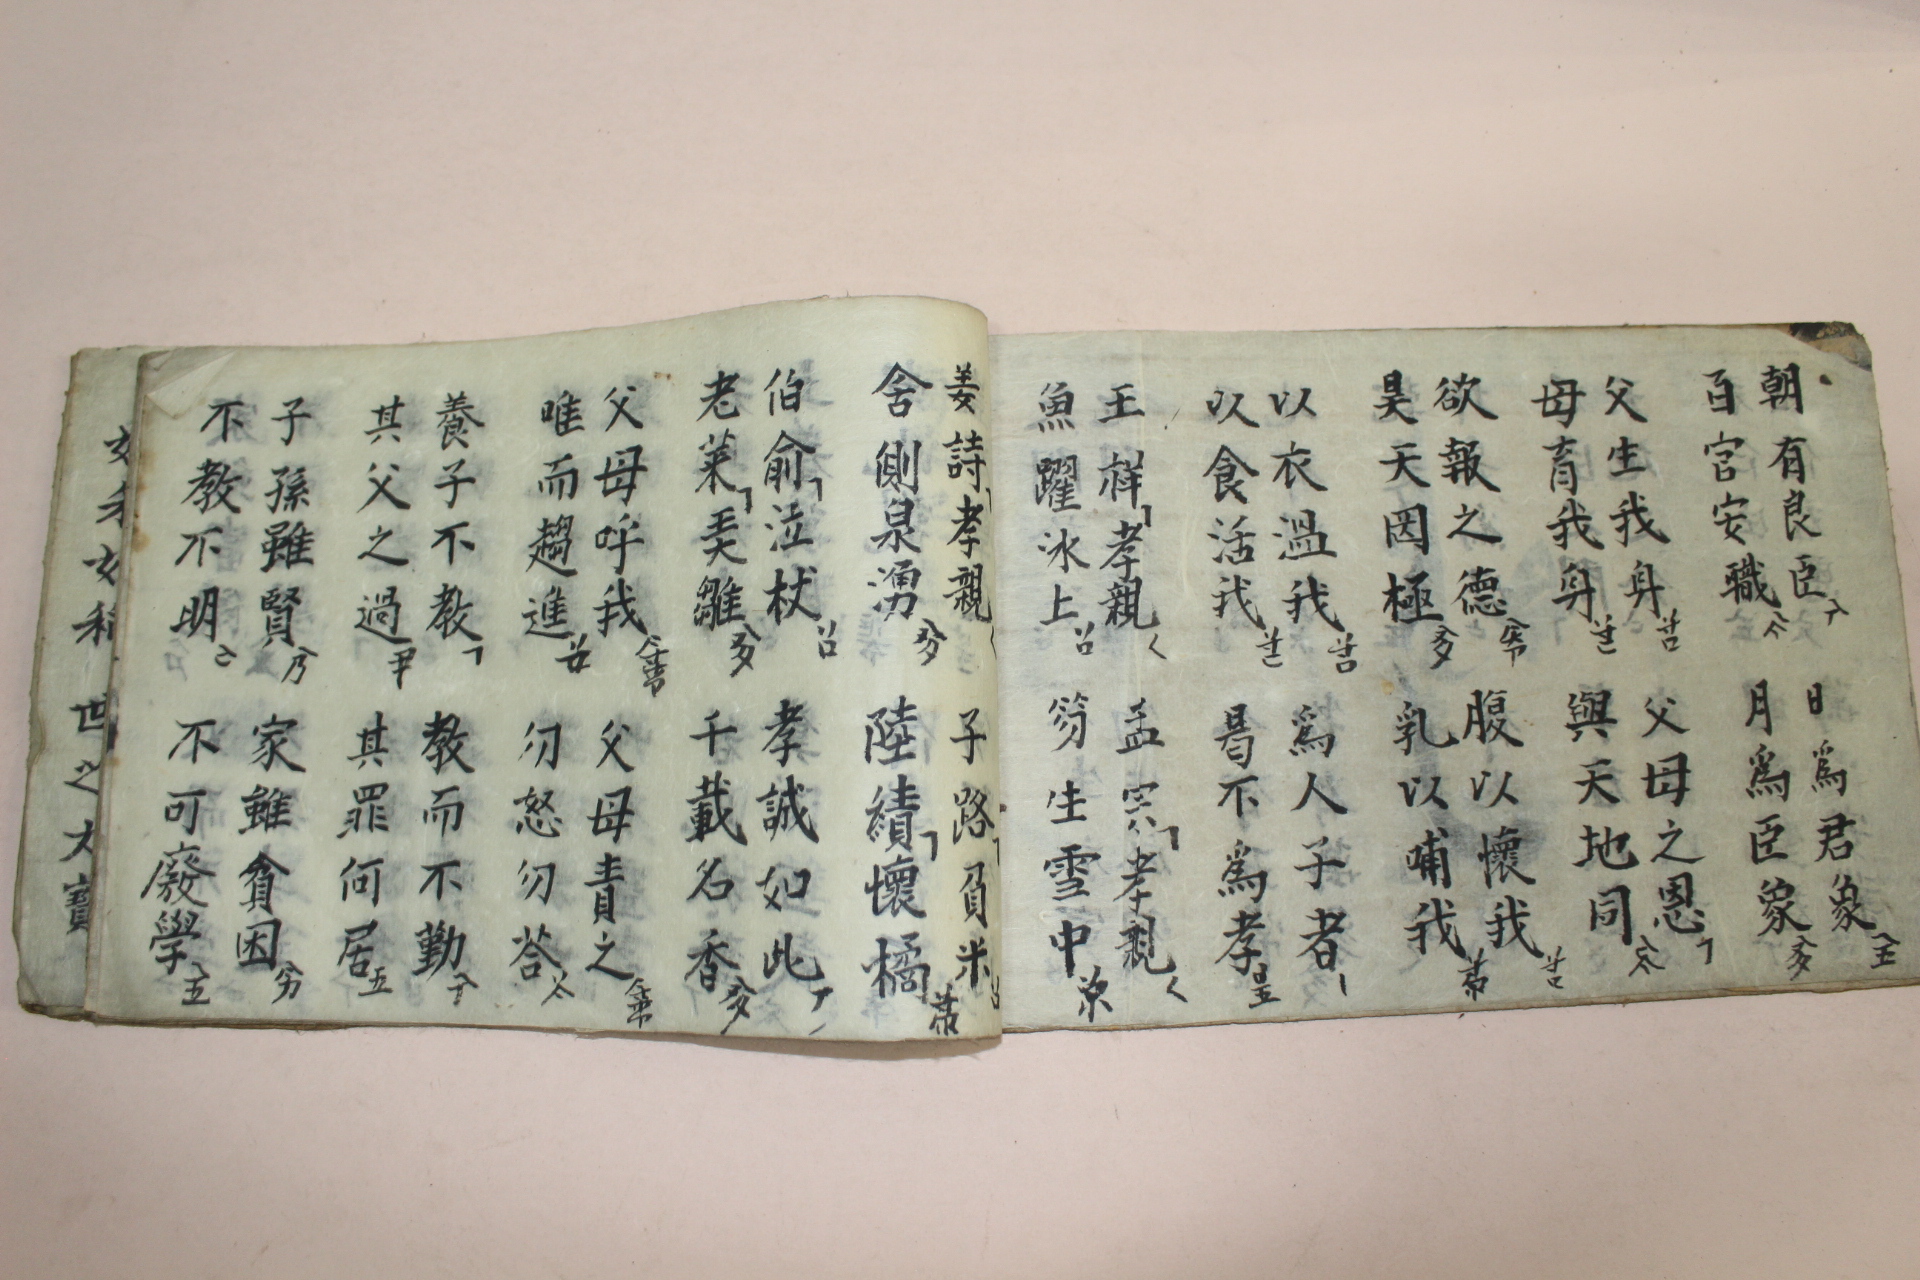 朝有良臣 日爲君象
百官安職 月爲臣象
父生我身 父母之恩
母育我身 與天地同
欲報之德 腹以懷我
昊天罔極 乳以哺我
以衣溫我 爲人子者
以食活我 曷不爲孝
王祥孝親 孟宗孝親
魚躍氷上 笋生雪中
姜詩孝親 子路負米
舍側泉湧 陸績懷橘
伯俞泣杖 孝誠如此
老萊弄雛 千載名香
父母呼我 父母責之
唯而趨進 勿怒勿答
養子不教 教而不勤
其父之過 其罪何居
子孫雖賢 家雖貧困
不教不明 不可廢學
世之大寶